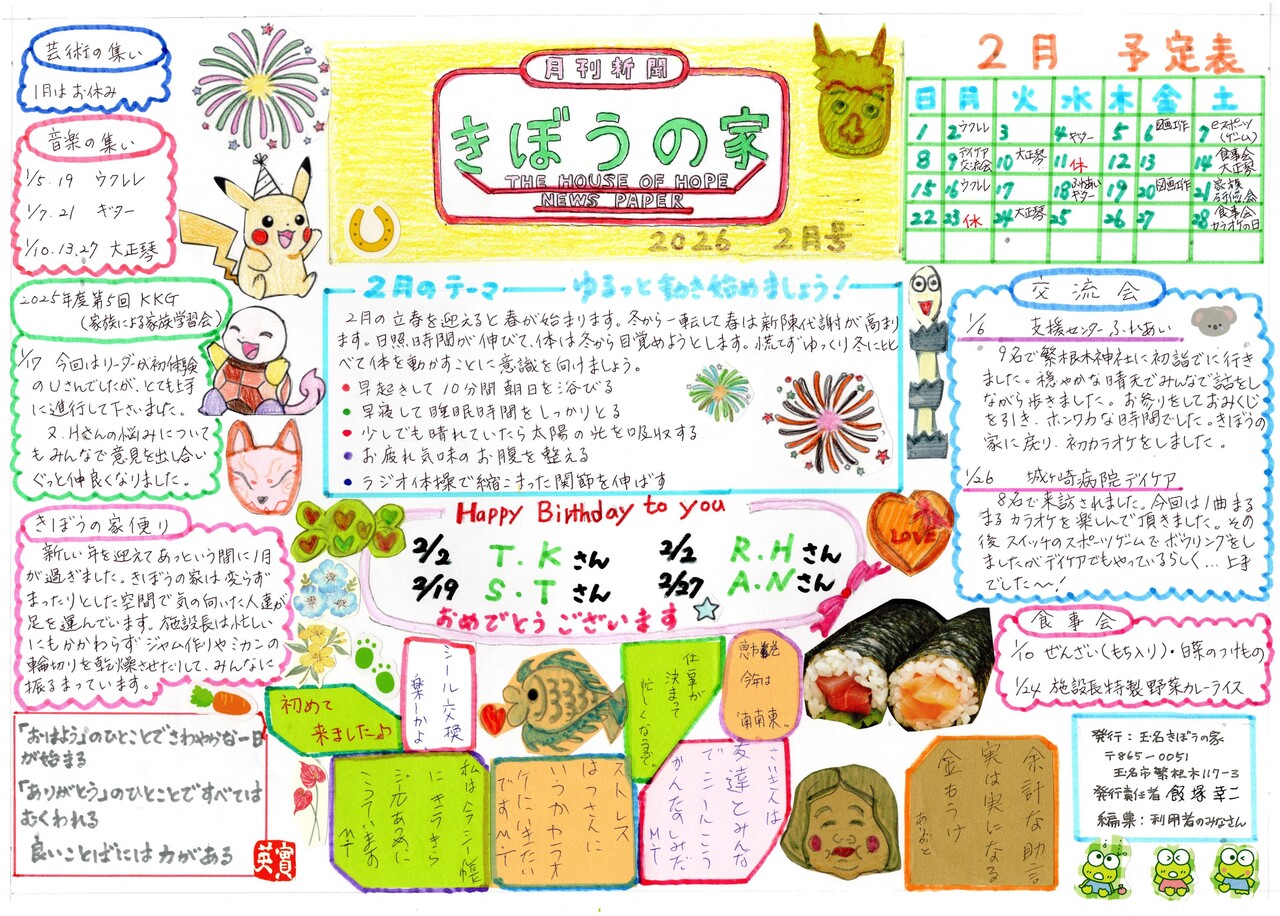 芸術の集い
1月はお休み
音楽の集い
1/5.19 ウクレレ
1/7.21 ギター
1/10.13.27 大正琴
2025年度第5回 KKG
(家族による家族学習会)
1/17 今回はリーダーが初体験
のUさんでしたが、とても上手
に進行して下さいました。
又、Hさんの悩みについて
もみんなで意見を出し合い
ぐっと仲良くなりました。
きぼうの家便り
新しい年を迎えてあっという間に1月
が過ぎました。きぼうの家は変らず
まったりとした空間で気の向いた人達が
足を運んでいます。施設長は忙しい
にもかかわらずジャム作りやミカンの
輪切りを乾燥させたりして、みんなに
振るまっています。
「おはよう」のひとことでさわやかな一日
が始まる
「ありがとう」のひとことですべては
むくわれる
良いことばには力がある
英實
月刊新聞
きぼうの家
THE HOUSE OF HOPE
NEWS PAPER
2026 2月号
2月のテーマ ー ゆるっと動き始めましょう!
2月の立春を迎えると春が始まります。冬から一転して春は新陳代謝が高まり
ます。日照時間が伸びて、体は冬から目覚めようとします。慌てずゆっくり冬に比
べて体を動かすことに意識を向けましょう。
● 早起きして10分間朝日を浴びる
● 早寝して睡眠時間をしっかりとる
● 少しでも晴れていたら太陽の光を吸収する
● お疲れ気味のお腹を整える
● ラジオ体操で縮こまった関節を伸ばす
Happy Birthday to you
2/2 T.Kさん 2/2 R.Hさん
2/19 S.Tさん 2/27 A.Nさん
おめでとうございます
LOVE
初めて
来ましたよ♪
シール交換
楽しーかよ
仕事が
決まって
忙しくなるぞ。
恵方巻
今年は
南南東
私は今シール帳
にキラキラ
シールあつめに
こっています
M.T
ストレス
はっさんに
いつかカラオ
ケにいきたい
ですM.T
さいきんは
友達とみんな
でこーかんこう
かんたのしみだ
M.T
余計な助言
実は実になる
金もうけ
ありがと
2月 予定表
日 月 火 水 木 金 土
1 2 ウクレレ 3 4 ギター 5 6 図画工作 7 eスポーツ(ゲーム)
8 9 デイケア交流会 10 大正琴 11 休 12 13 14 食事会 大正琴
15 16 ウクレレ 17 18 ふれあい ギター 19 20 図画工作 21 家族研修会
22 23 休 24 大正琴 25 26 27 28 食事会 カラオケの日
交流会
1/6 支援センターふれあい
9名で繁根木神社に初詣でに行き
ました。穏やかな晴天でみんなで話をし
ながら歩きました。お参りをしておみくじ
を引き、ホンワカな時間でした。きぼうの
家に戻り、初カラオケをしました。
1/26 城ヶ崎病院デイケア
8名で来訪されました。今回は1曲まる
まるカラオケを楽しんで頂きました。その
後スイッチのスポーツゲームでボウリングをし
ましたがデイケアでもやっているらしく…上手
でした〜!
食事会
1/10 ぜんざい(もち入り)・白菜のつけもの
1/24 施設長特製野菜カレーライス
発行:玉名きぼうの家
〒865-0051
玉名市繁根木117-3
発行責任者 飯塚幸二
編集:利用者のみなさん